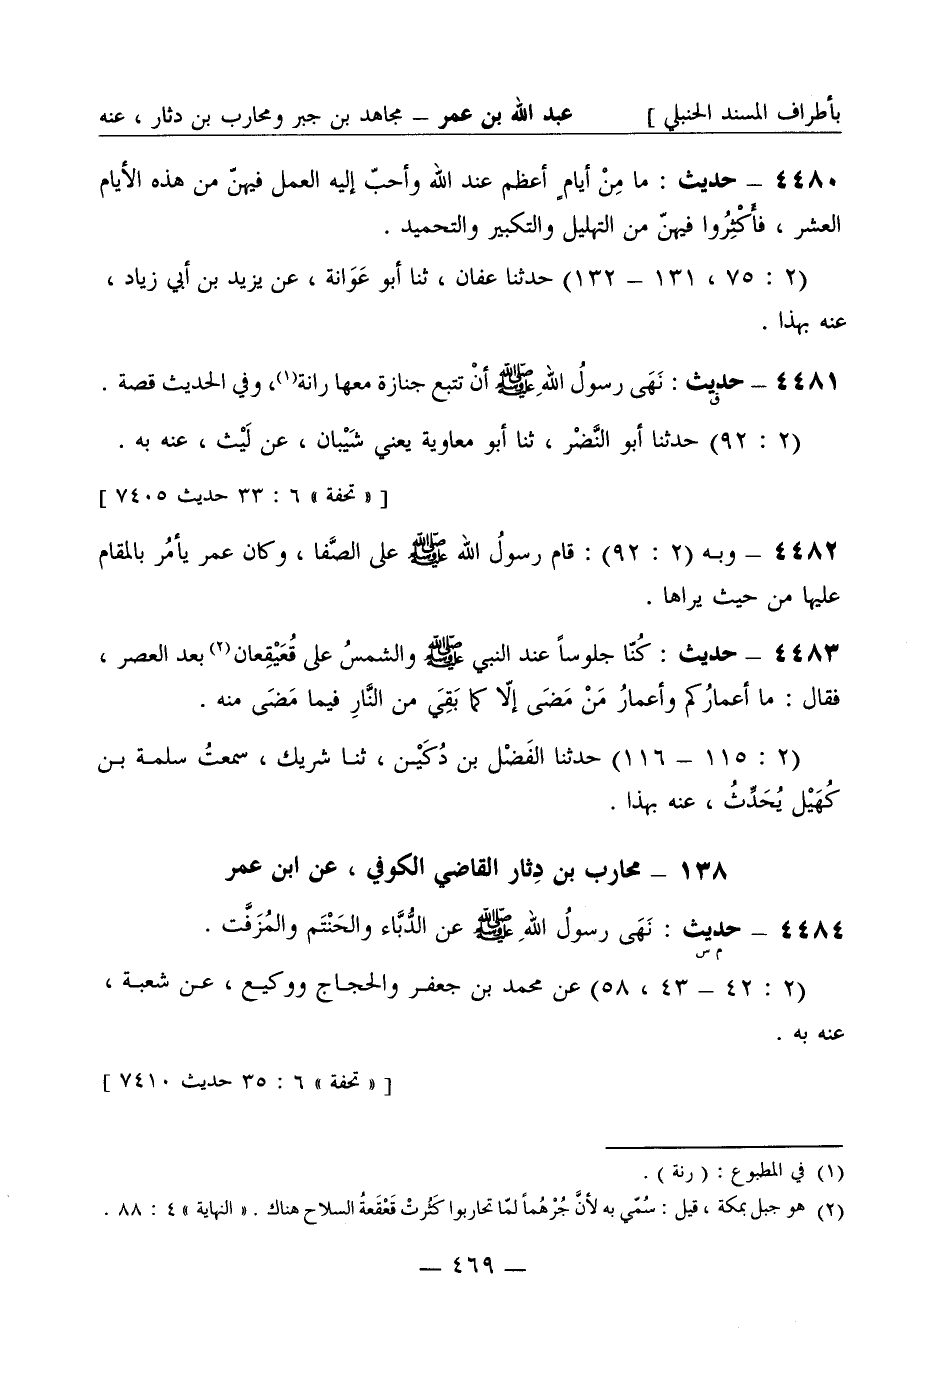 بأطراف المسند الحنبلي ] عبد الله بن عمر – مجاهد بن جبر ومحارب بن دثار ، عنه
٤٤٨٠ – حديث : ما مِنْ أيامٍ أعظم عند الله وأحبّ إليه العمل فيهنّ من هذه الأيام
العشر ، فأَكْثِرُوا فيهنّ من التهليل والتكبير والتحميد .
(٢ : ٧٥ ، ١٣١ – ١٣٢) حدثنا عفان ، ثنا أبو عَوَانة ، عن يزيد بن أبي زياد ،
عنه بهذا .
٤٤٨١ – حديث : نَهَى رسولُ اللهِ ﷺ أنْ تتبع جنازة معها رانة(١)، وفي الحديث قصة .
ق
(٢ : ٩٢) حدثنا أبو النَّضْر ، ثنا أبو معاوية يعني شَيْبان ، عن لَيْث ، عنه به .
[ « تحفة » ٦ : ٣٣ حديث ٧٤٠٥ ]
٤٤٨٢ – وبـه (٢ : ٩٢) : قام رسولُ الله ﷺ على الصَّفا ، وكان عمر يأمُر بالمقام
عليها من حيث يراها .
٤٤٨٣ – حديث : كُنّا جلوساً عند النبي ﷺ والشمسُ على قُعَيْقِعان(٢) بعد العصر ،
فقال : ما أعمارُكم وأعمارُ مَنْ مَضَى إلّا كما بَقِيَ من النَّارِ فيما مَضَى منه .
(٢ : ١١٥ – ١١٦) حدثنا الفَضْل بن دُكَيْـن ، ثنـا شريك ، سمعتُ سلمـة بـن
كُهَيْل يُحَدِّثُ ، عنه بهذا .
١٣٨ – محارب بن دِثار القاضي الكوفي ، عن ابن عمر
٤٤٨٤ – حديث : نَهَى رسولُ اللهِ ﷺ عن الدُّبَّاء والحَنْتَم والمُزَفَّت .
م س
(٢ : ٤٢ – ٤٣ ، ٥٨) عن محمد بن جعفـر والحجـاج ووكيـع ، عـن شعبـة ،
عنه به .
[ « تحفة » ٦ : ٣٥ حديث ٧٤١٠ ]
(١) في المطبوع : ( رنة ) .
(٢) هو جبل بمكة ، قيل : سُمّي به لأنَّ جُرْهُماً لمّا تحاربوا كَثُرتْ قَعْقَعةُ السلاح هناك . « النهاية » ٤ : ٨٨ .
– ٤٦٩ –